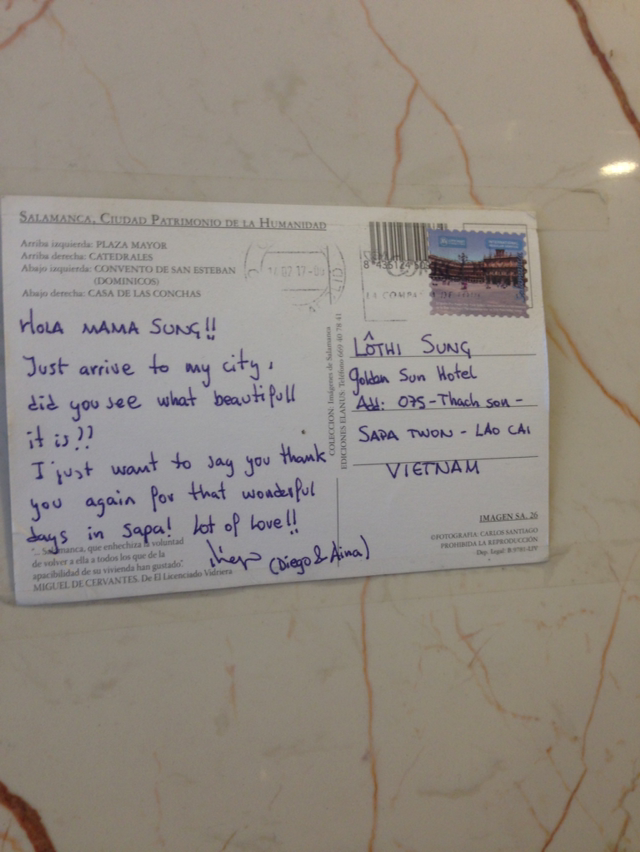 SALAMANCA, CIUDAD PATRIMONIO DE LA HUMANIDAD
Arriba izquierda: PLAZA MAYOR
Arriba derecha: CATEDRALES
Abajo izquierda: CONVENTO DE SAN ESTEBAN
(DOMINICOS)
Abajo derecha: CASA DE LAS CONCHAS
HOLA MAMA SUNG!!
Just arrive to my city,
did you see what beautifull
it is??
I just want to say you thank
you again for that wonderful
days in Sapa! Lot of Love!!
Diego (Diego & Aina)
"... Salamanca, que enhechiza la voluntad
de volver a ella a todos los que de la
apacibilidad de su vivienda han gustado".
MIGUEL DE CERVANTES. De El Licenciado Vidriera
COLECCION: Imágenes de Salamanca
EDICIONES ELANUS: Teléfono 669 40 78 41
LÔTHI SUNG
Goldan Sun Hotel
Add: 075-Thach son-
SAPA TWON - LAO CAI
VIETNAM
IMAGEN SA. 26
©FOTOGRAFIA: CARLOS SANTIAGO
PROHIBIDA LA REPRODUCCIÓN